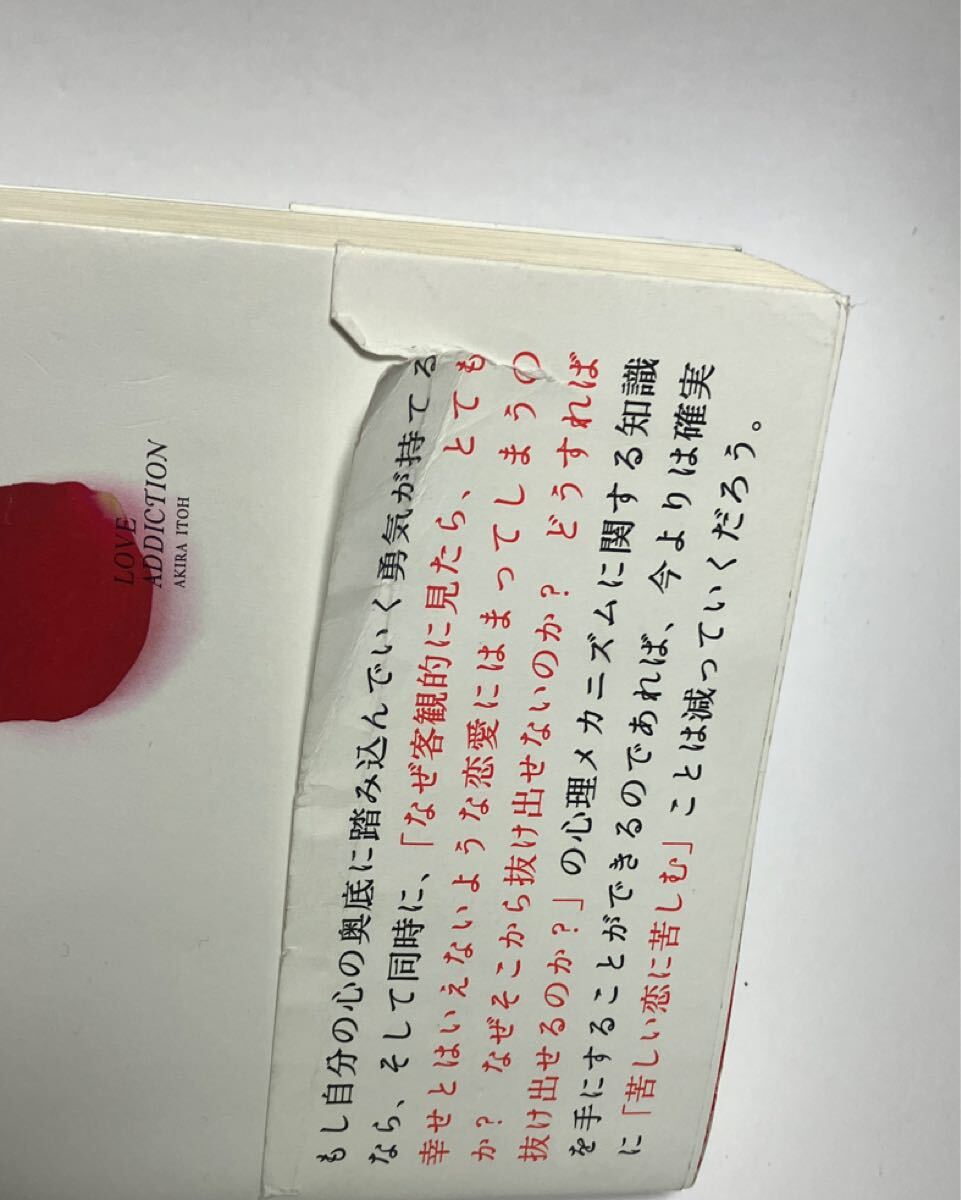 LOVE
ADDICTION
AKIRA ITOH
もし自分の心の奥底に踏み込んでいく勇気が持てる
なら、そして同時に、「なぜ客観的に見たら、とても
幸せとはいえないような恋愛にはまってしまうの
か？ なぜそこから抜け出せないのか？ どうすれば
抜け出せるのか？」の心理メカニズムに関する知識
を手にすることができるのであれば、今よりは確実
に「苦しい恋に苦しむ」ことは減っていくだろう。